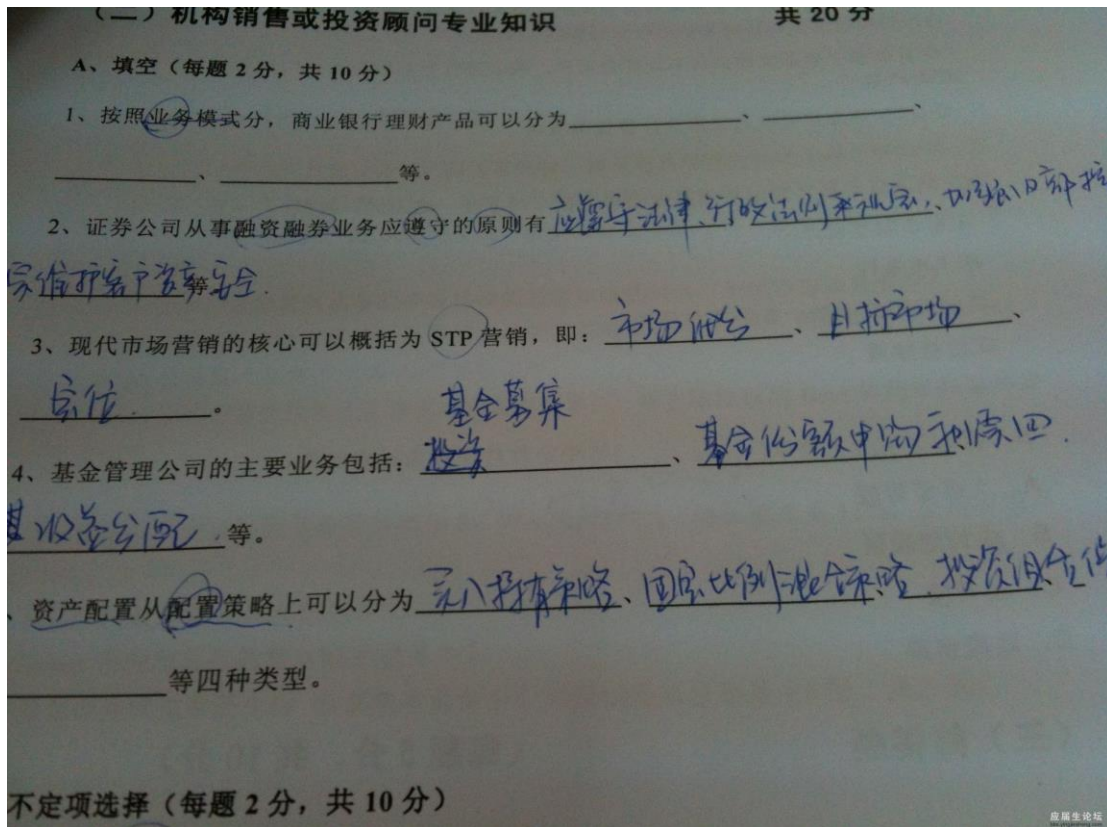 （二）机构销售或投资顾问专业知识 共 20 分
A、填空（每题 2 分，共 10 分）
1、按照业务模式分，商业银行理财产品可以分为____________、____________、
____________、____________等。
2、证券公司从事融资融券业务应遵守的原则有 应遵守法律、行政法规和规定、加强内部控
维护客户资产等安全.
3、现代市场营销的核心可以概括为 STP 营销，即：市场细分、目标市场、
定位。
基金募集
4、基金管理公司的主要业务包括：投资、基金份额申购和赎回.
收益分配.等。
、资产配置从配置策略上可以分为买入持有策略、固定比例混合策略、投资组合
____________等四种类型。
不定项选择（每题 2 分，共 10 分）
应届生论坛